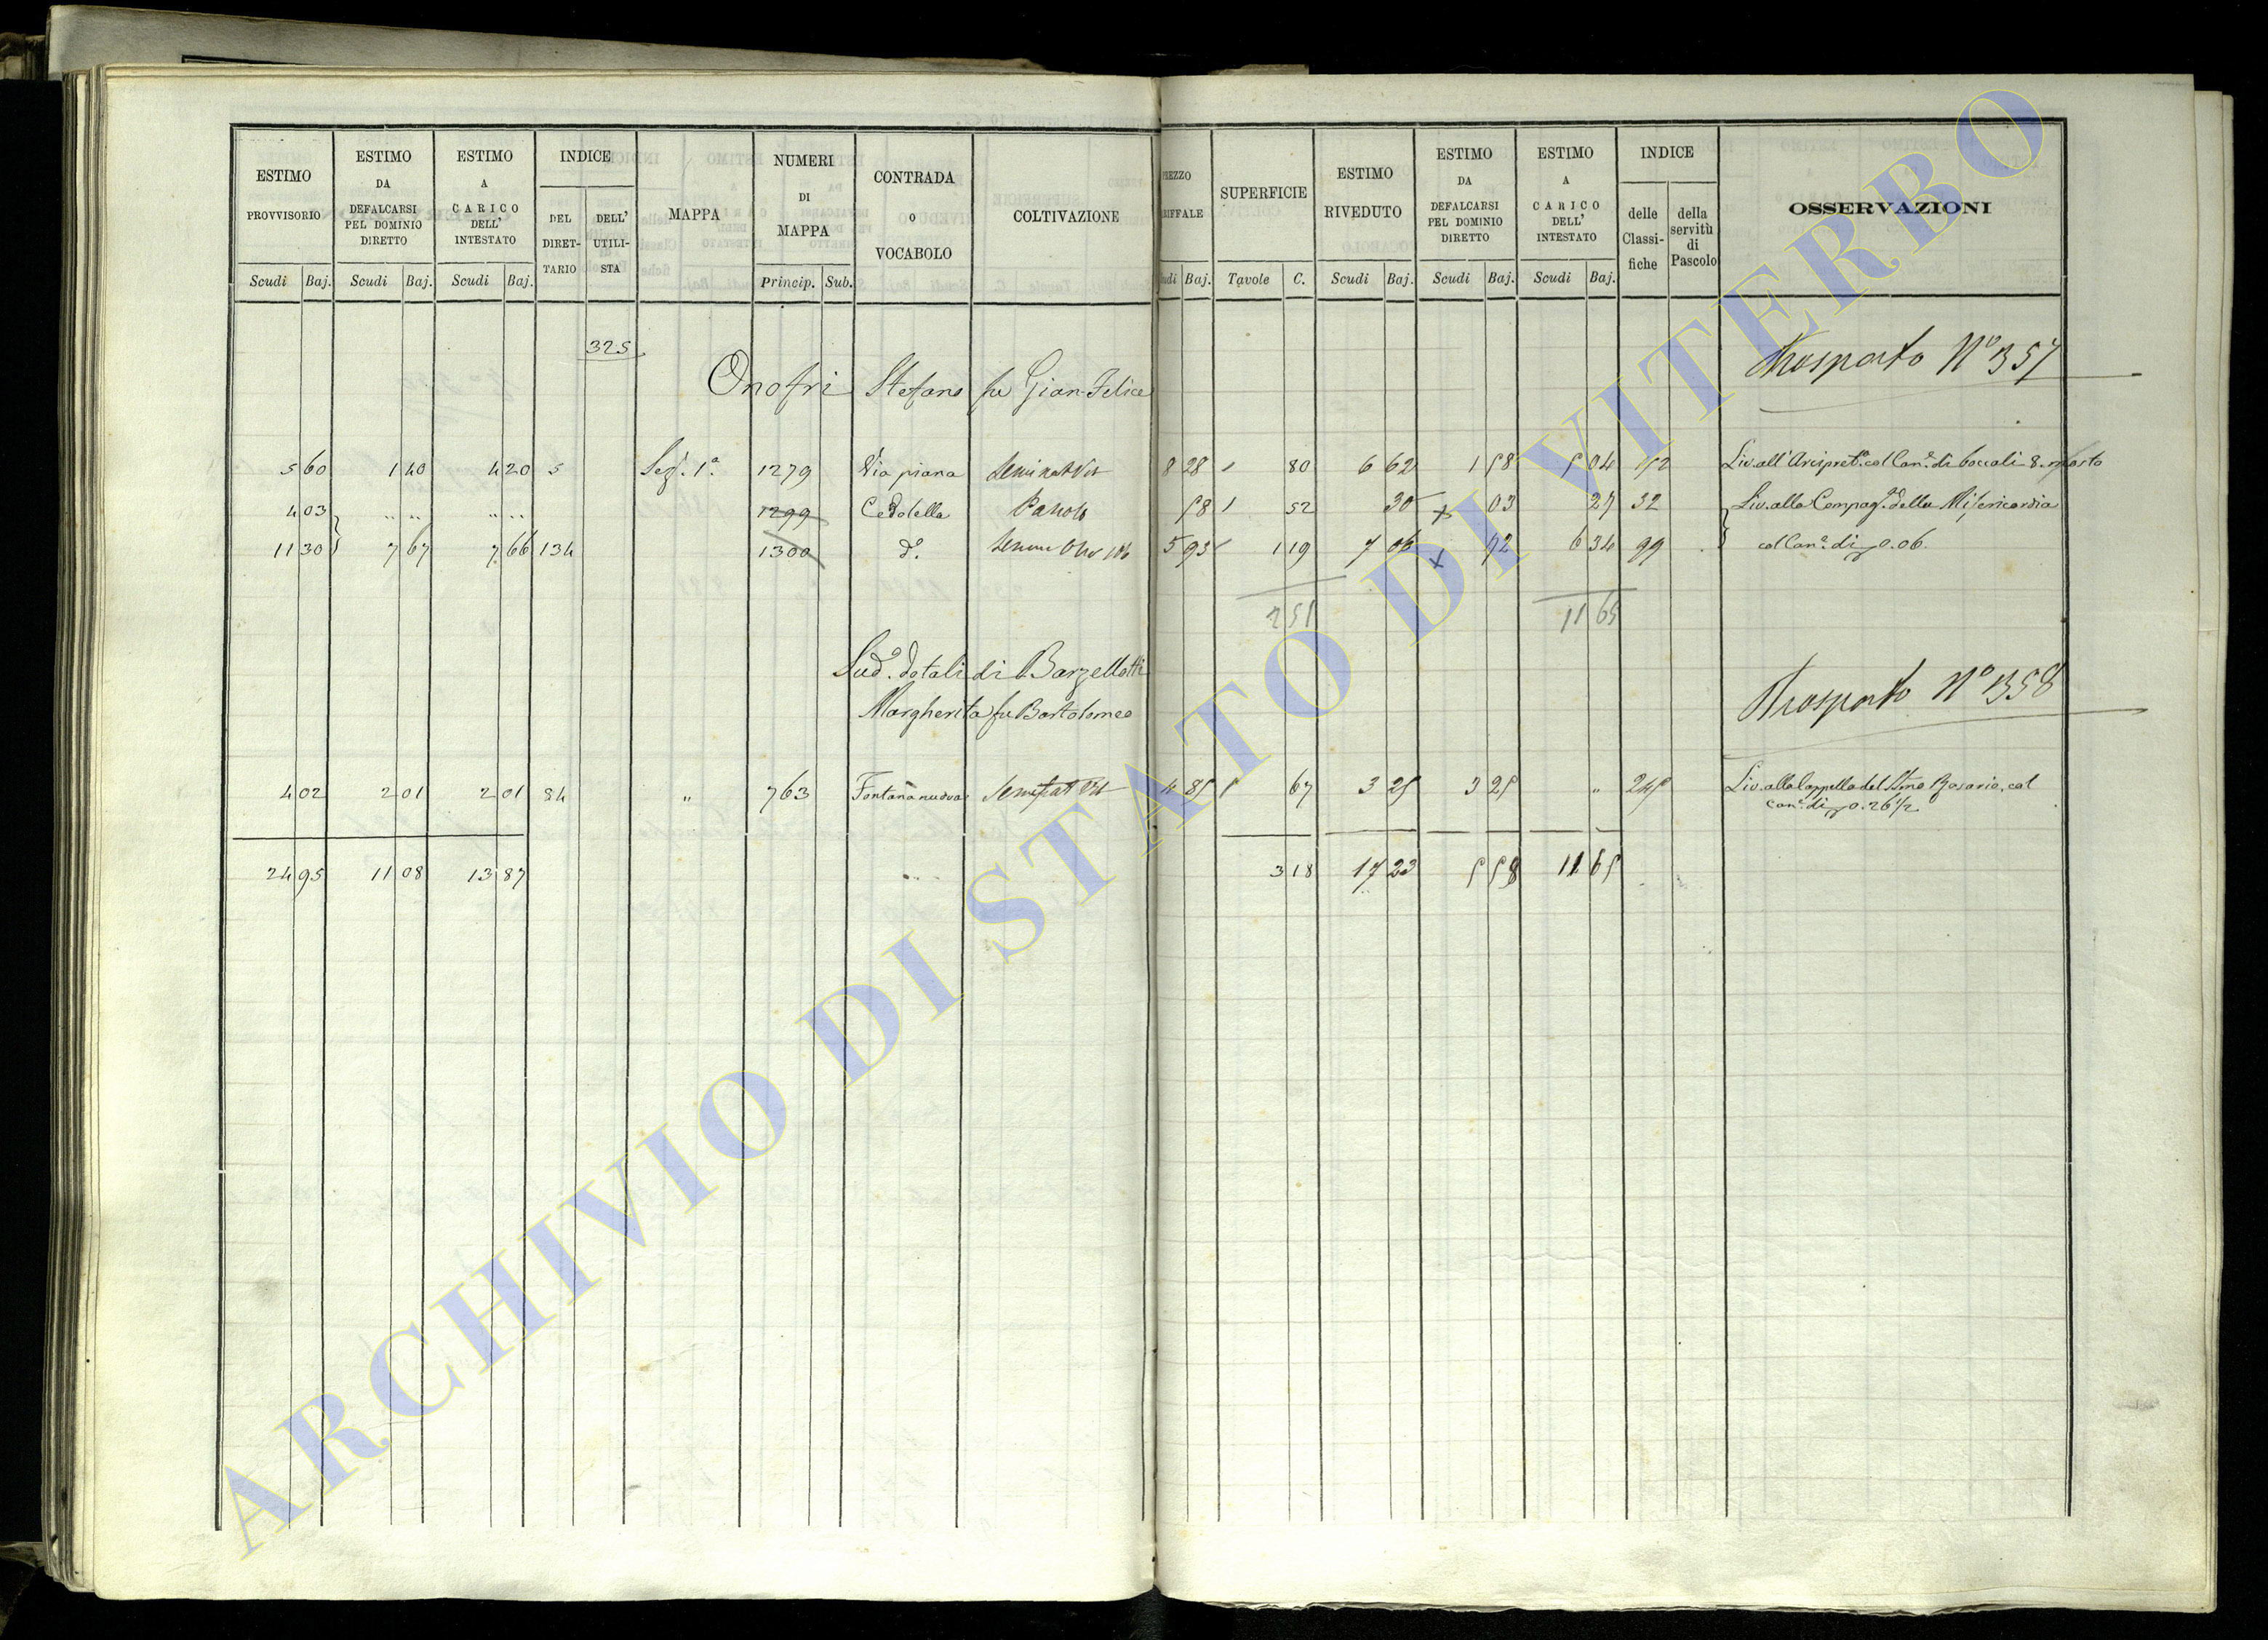 ESTIMO PROVVISORIO Scudi Baj.
ESTIMO DA DEFALCARSI PEL DOMINIO DIRETTO Scudi Baj.
ESTIMO A CARICO DELL' INTESTATO Scudi Baj.
INDICE DEL DIRETTARIO DELL' UTILISTA
MAPPA
NUMERI DI MAPPA Princip. Sub.
CONTRADA O VOCABOLO
COLTIVAZIONE
Baj.
SUPERFICIE Tavole C.
ESTIMO RIVEDUTO Scudi Baj.
ESTIMO DA DEFALCARSI PEL DOMINIO DIRETTO Scudi Baj.
ESTIMO A CARICO DELL' INTESTATO Scudi Baj.
INDICE delle Classifiche della servitù di Pascolo
OSSERVAZIONI
325
Onofri Stefano fu Gian-Felice
Trasporto Nº 1357
5 60 1 40 4 20 5 Sez. 1ª 1279 Via piana Seminat Vit 8 28 80 6 62 1 58 5 04 152 Liv. all' Aripret. col Can.e di boccali 8. mosto
4 03 " " " " " " 1299 Cedolella 58 52 30 03 27 32 Liv. alla Compag. della Misericordia
11 30 7 67 7 66 134 1300 dº. 5 93 1 19 7 06 72 6 34 99 col Can.e di 0.06.
2 51 11 65
Sudº. dotali di Barzellotti
Margherita fu Bartolomeo
Trasporto Nº 1358
4 02 2 01 2 01 84 " 763 Fontana nuova Seminat Vit 4 85 67 3 25 3 25 " 245 Liv. alla Cappella del SSmo Rosario, col
Can.e di 0.26 1/2
24 95 11 08 13 87 3 18 17 23 5 58 11 65
ARCHIVIO DI STATO DI VITERBO